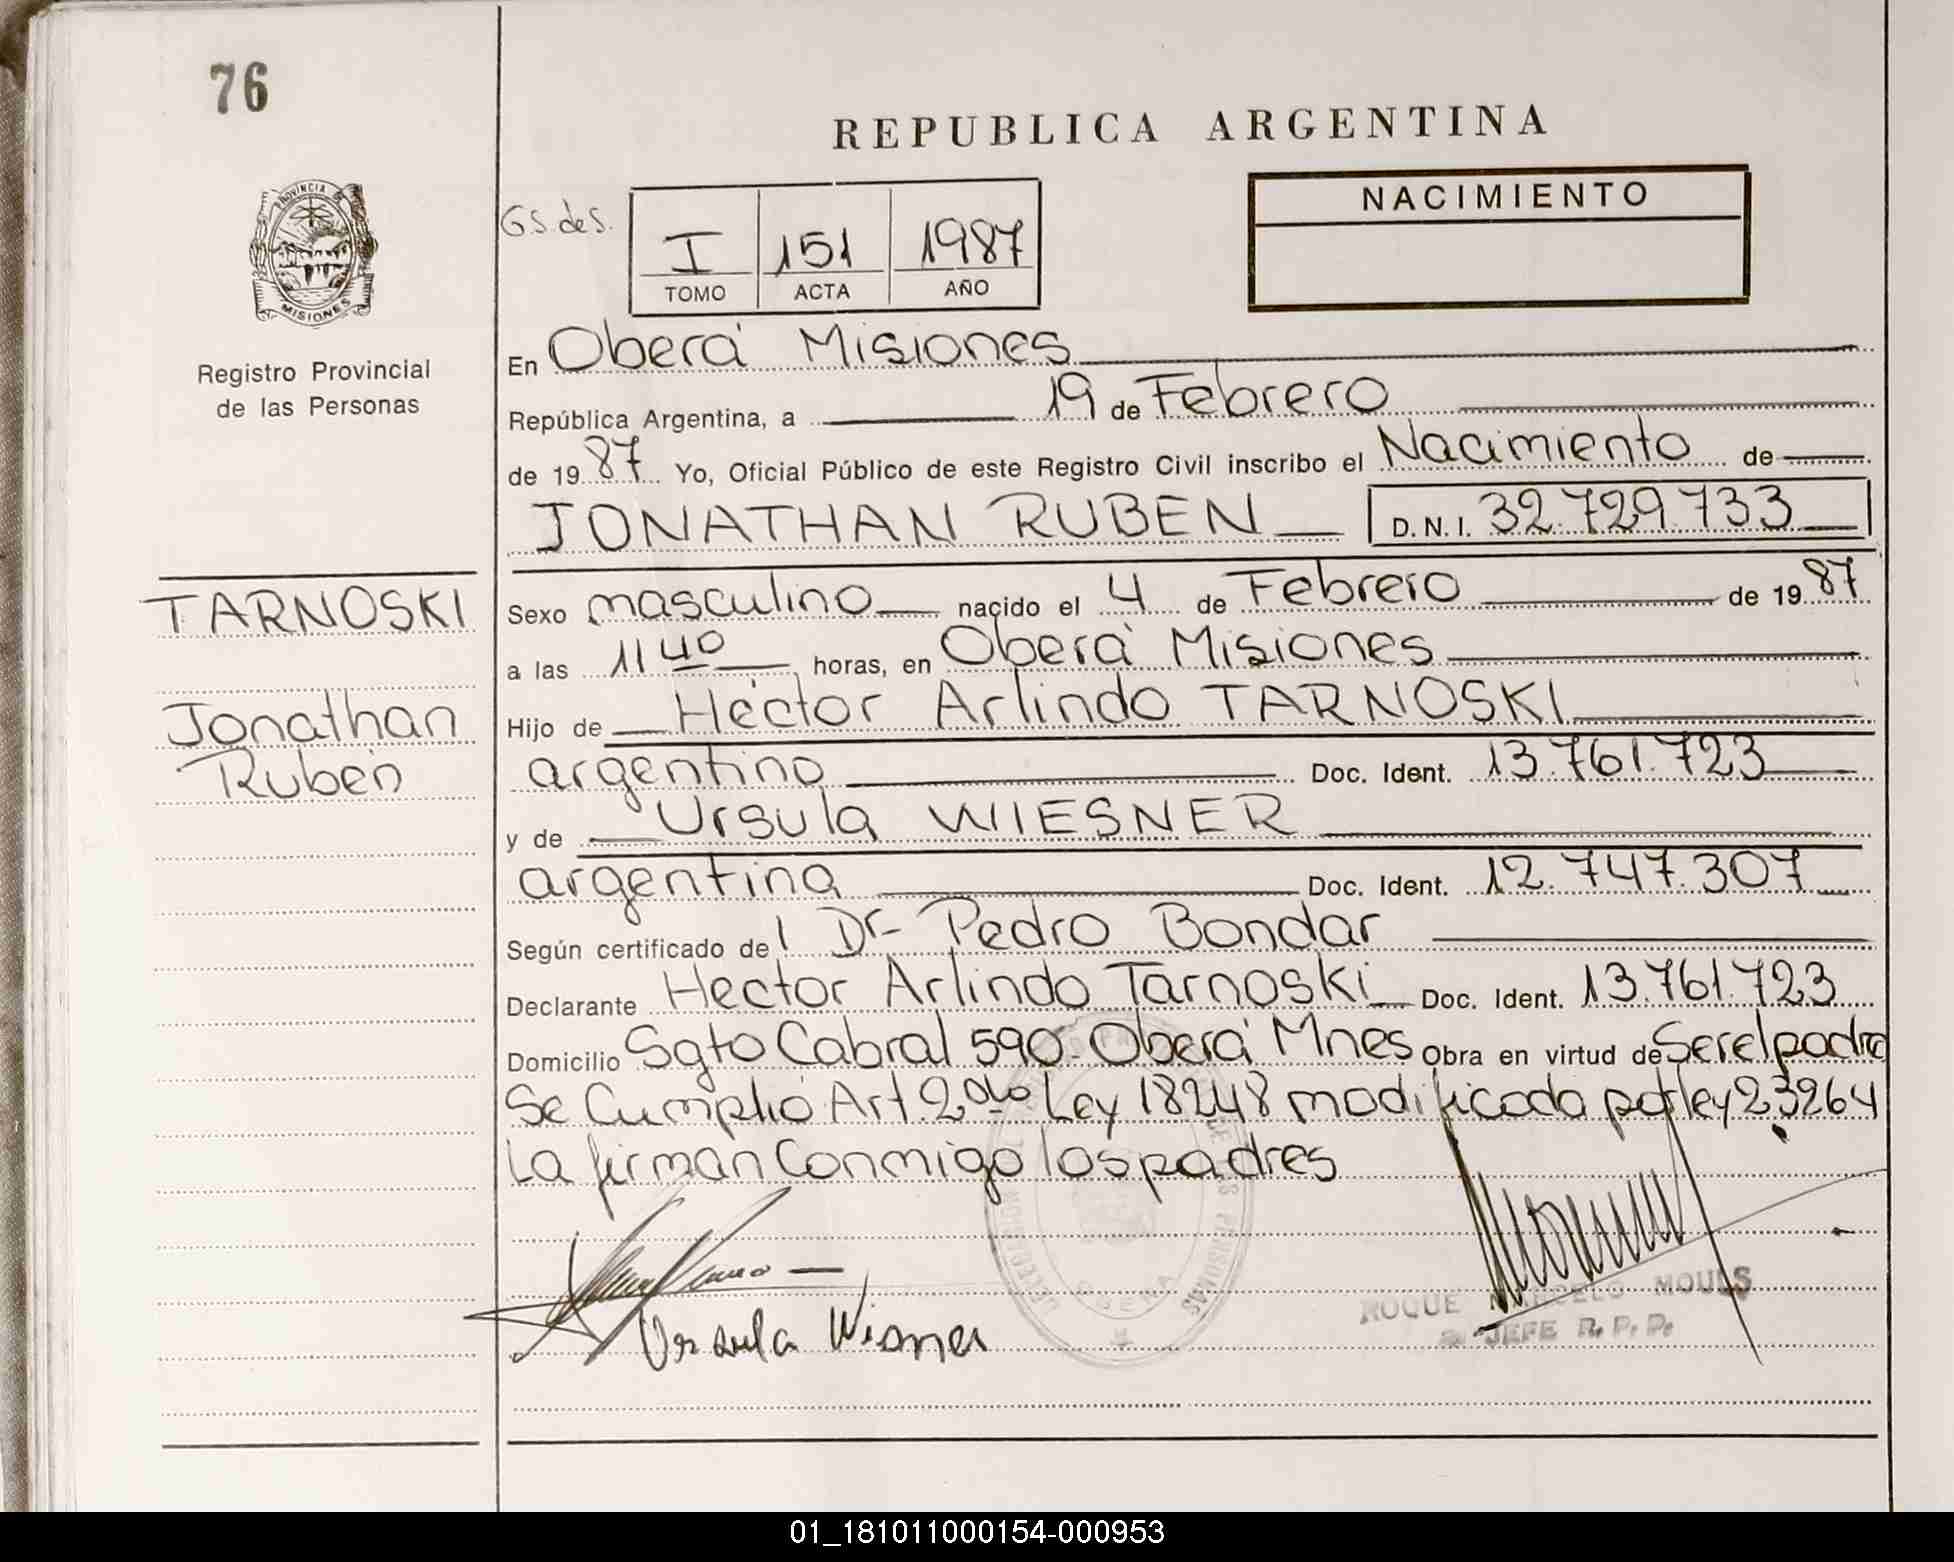 76
REPUBLICA ARGENTINA
PROVINCIA DE
MISIONES
Registro Provincial
de las Personas
G.S. deS.
I 151 1987
TOMO ACTA AÑO
NACIMIENTO
En Oberá Misiones
República Argentina, a 19 de Febrero
de 1987 Yo, Oficial Público de este Registro Civil inscribo el Nacimiento de
JONATHAN RUBEN D.N.I. 32.729.733
TARNOSKI
Jonathan
Rubén
Sexo masculino nacido el 4 de Febrero de 1987
a las 11 40 horas, en Oberá Misiones
Hijo de Héctor Arlindo TARNOSKI
argentino Doc. Ident. 13.761.723
y de Ursula WIESNER
argentina Doc. Ident. 12.747.307
Según certificado del Dr Pedro Bondar
Declarante Hector Arlindo Tarnoski Doc. Ident. 13.761.723
Domicilio Sgto Cabral 590 Oberá Mnes Obra en virtud de Ser el padre
Se Cumplió Art. 2do Ley 18248 modificada por ley 23264
La firman Conmigo los padres
Ursula Wisner
ROQUE MARCELO MOULS
JEFE R. P. P.
OBERA
01_181011000154-000953